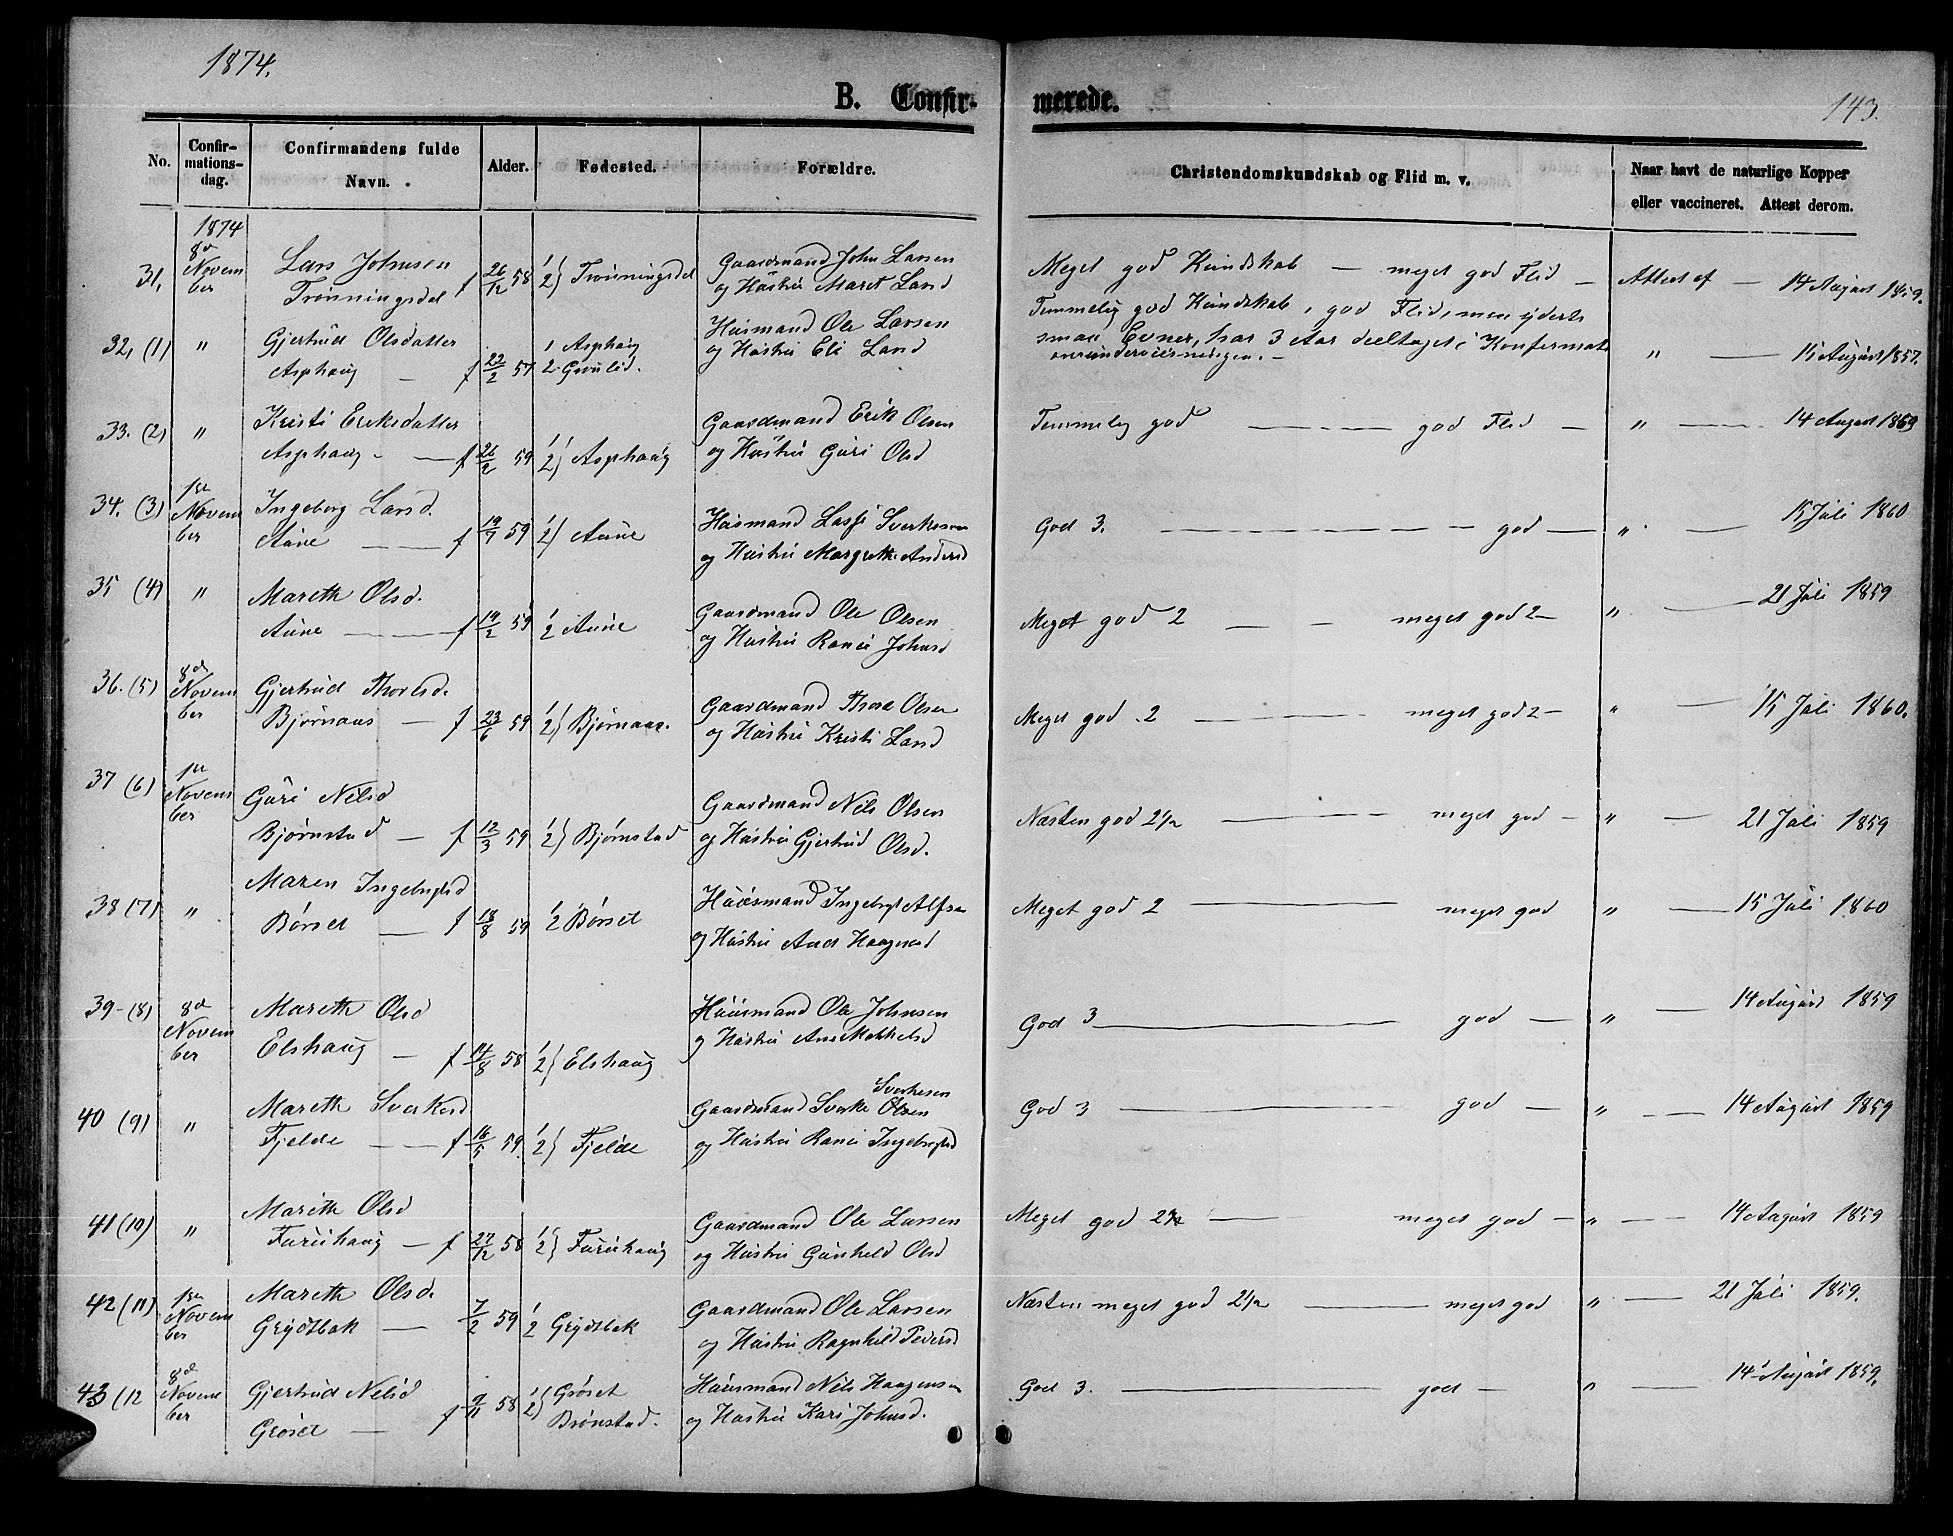 1874.
B. Confir-
merede.
143.
No.
Confir-
mations-
dag.
Confirmandens fulde
Navn.
Alder.
Fødested.
Forældre.
Christendomskundskab og Flid m. v.
Naar havt de naturlige Kopper
eller vaccineret. Attest derom.
1874
31, 8d Novem ber
Lars Johnsen
Trønningsdal f 26/12 58 1 2} Trønningsdal
Gaardmand John Larsen
og Hustru Maret Larsd
Meget god Kundskab — meget god Flid — Attest af — 14 August 1859.
32, (1) "
Gjertrud Olsdatter
Asphaug — f 22/2 57
1 Asphaug
2
Huusmand Ole Larsen
og Hustru Eli Larsd
Temmelig god Kundskab, god Flid, men yderst
smaa Evner, har 3 Aar deeltaget i Konfirmati
onsunderviisningen. — " — 15 August 1857.
33. (2) "
Kristi Eriksdatter
Asphaug — f 26/2 59 1 2} Asphaug
Gaardmand Erik Olsen
og Hustru Guri Olsd
Temmelig god — god Flid — " — 14 August 1859
34. (3) 1ste Novem ber
Ingeborg Larsd.
Aune — f 19/7 59 1 2} Aune
Huusmand Lasse Sverkesen
og Hustru Margrethe Andersd
God 3. — god — " — 15 Juli 1860
35 (4) "
Mareth Olsd.
Aune — f 19/2 59 1 2 Aune
Gaardmand Ole Olsen
og Hustru Ranei Johnsd
Meget god 2 — meget god 2 — " — 21 Juli 1859
36. (5) 8de Novem ber
Gjertrud Thoresd.
Bjørnaas — f 23/6 59 1 2} Bjørnaas.
Gaardmand Thore Olsen
og Hustru Kristi Larsd
Meget god 2 — meget god 2 — " — 15 Juli 1860.
37 (6) 1ste Novem ber
Guri Nilsd
Bjørnstad — f 12/3 59 1 2} Bjørnstad
Gaardmand Nils Olsen
og Hustru Gjertrud Olsd.
Næsten god 2 1/2 — meget god — " — 21 Juli 1859
38 (7) "
Maren Ingebrigtsd
Børset — f 18/8 59 1 2 Børset
Huusmand Ingebrigt Alfsen
og Hustru Haagensd
Meget god 2 — meget god " — 15 Juli 1860
39 - (8) 8d Novem ber
Mareth Olsd
Elshaug — f 14/8 58 1 2} Elshaug
Huusmand Ole Johnsen
og Hustru Anne Mikkelsd
God 3 — god — " — 14 August 1859
40 (9) "
Mareth Sverkesd
Fjelde — f 16/5 59. 1 2} Fjelde
Sverkesen
Gaardmand Sverke Olsen
og Hustru Ranei Ingebrigtsd
God 3 — god — " — 14 August 1859
41 (10) "
Mareth Olsd
Furuhaug — f 27/12 58 1 2} Furuhaug
Gaardmand Ole Larsen
og Hustru Gunhild Olsd
Meget god 2 1/2 — meget god — " — 14 August 1859
42 (11) 1ste Novem ber
Mareth Olsd.
Grydtbak — 7/2 59 1 2 Grydtbak
Gaardmand Ole Larsen
og Hustru Ragnhild Pedersd
Næsten meget god 2 1/2 — meget god " — 21 Juli 1859.
43 (12 8d Novem ber
Gjertrud Nilsd
Grøset — f 9/11 58
1 2} Grøset
Brønstad.
Huusmand Nils Haagensen
og Hustru Kari Johnsd.
God 3. — god — " — 14 August 1859.